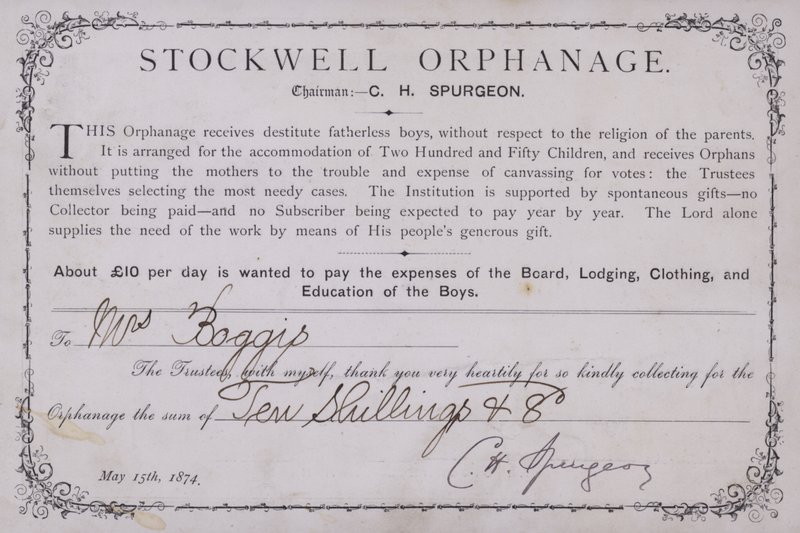 STOCKWELL ORPHANAGE.
Chairman:—C. H. SPURGEON.
THIS Orphanage receives destitute fatherless boys, without respect to the religion of the parents.
It is arranged for the accommodation of Two Hundred and Fifty Children, and receives Orphans
without putting the mothers to the trouble and expense of canvassing for votes: the Trustees
themselves selecting the most needy cases. The Institution is supported by spontaneous gifts—no
Collector being paid—and no Subscriber being expected to pay year by year. The Lord alone
supplies the need of the work by means of His people's generous gift.
About £10 per day is wanted to pay the expenses of the Board, Lodging, Clothing, and
Education of the Boys.
To Mrs Boggis
The Trustees, with myself, thank you very heartily for so kindly collecting for the
Orphanage the sum of Ten Shillings & 8
C. H. Spurgeon
May 15th, 1874.